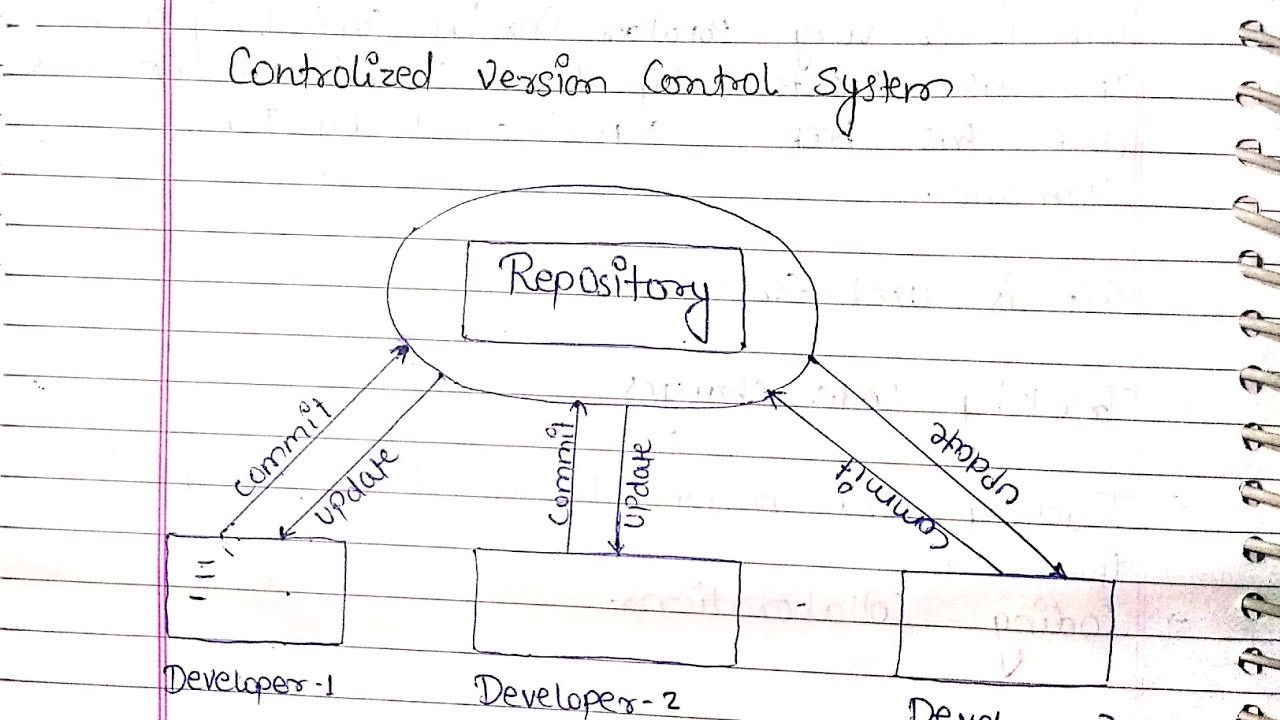 Controlized Version Control System
Repository
Commit
update
Commit
update
Commit
update
Developer-1
Developer-2